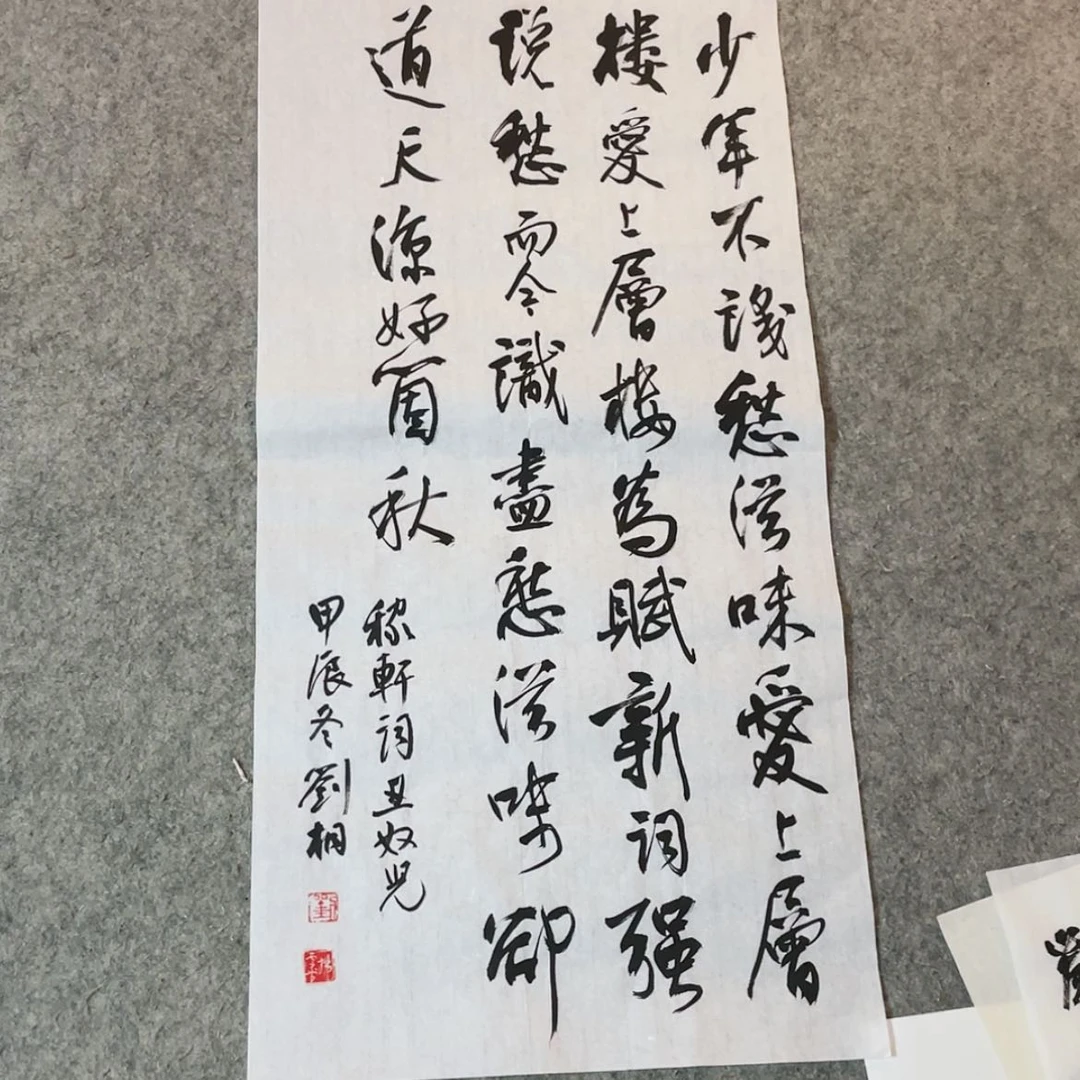 少年不識愁滋味愛上層
樓愛上層樓為賦新詞强
説愁而今識盡愁滋味卻
道天涼好箇秋
稼軒詞丑奴兒
甲辰冬劉桐